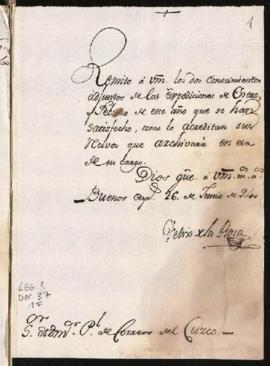 1
Remito á Vm. los dos conocimientos
adjuntos de las Expediciones de Enero,
y de este año que se han
satisfecho, como lo acreditan sus
recivos que archivará en esa
de su cargo.
Dios gūe. á Vm. m. a.
Buenos Ay.s 26 de Junio de 94
Petris de la
LEG. 1
DOC. 37
1 F
S. Adm.r P.l de Correos del Cuzco